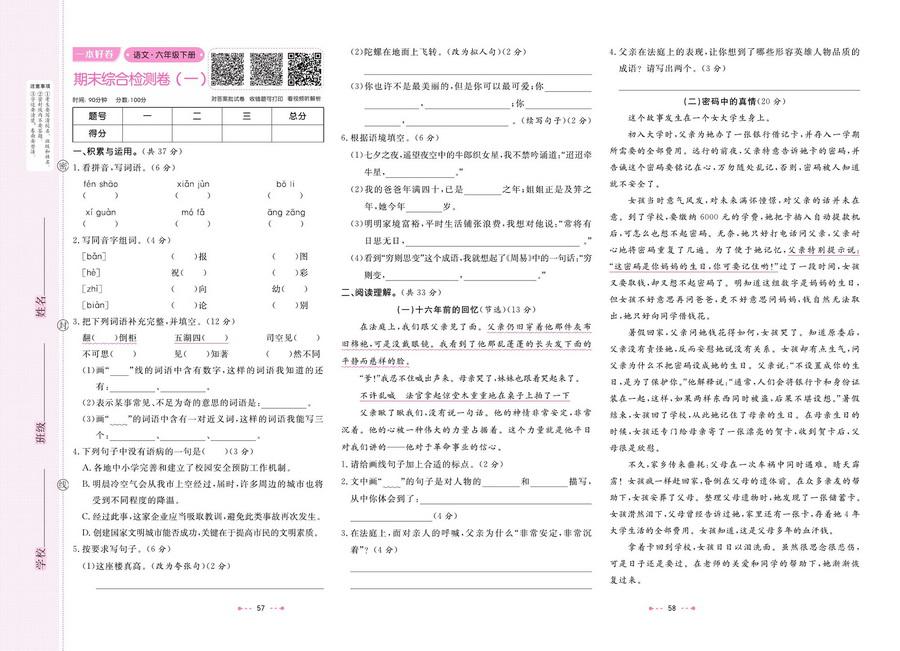 注意事项
姓名
班级
学校
密
封
线
一本好卷 语文·六年级下册
期末综合检测卷(一)
时间:90分钟 分数:100分
对答案批试卷 收错题可打印 看视频听解析
题号 一 二 三 总分
得分
一、积累与运用。(共 37 分)
1.看拼音,写词语。(6 分)
fén shāo xiǎn jùn bō li
( ) ( ) ( )
xí guàn mó fǎ āng zāng
( ) ( ) ( )
2.写同音字组词。(4 分)
[bǎn] ( )报 ( )图
[hè] 祝( ) ( )彩
[zhì] ( )向 幼( )
[biàn] ( )论 ( )别
3.把下列词语补充完整,并填空。(12 分)
翻( )倒柜 五湖四( ) 司空见( )
不可思( ) 见( )知著 ( )然不同
(1)画“____”线的词语中含有数字,这样的词语我知道的还
有:________、________。
(2)表示某事常见、不足为奇的意思的词语是:________。
(3)画“﹏﹏”的词语中含有一对近义词,这样的词语我能写三
个:________、________、________。
4.下列句子中没有语病的一句是( )(3 分)
A.各地中小学完善和建立了校园安全预防工作机制。
B.明晨冷空气会从我市上空经过,届时,许多周边的城市也将
受到不同程度的降温。
C.经过此事,这家企业应当吸取教训,避免此类事故再次发生。
D.创建国家文明城市能否成功,关键在于提高市民的文明素质。
5.按要求写句子。(6 分)
(1)这座楼真高。(改为夸张句)(2 分)
57
(2)陀螺在地面上飞转。(改为拟人句)(2 分)
(3)你也许不是最美丽的,但是你可以最可爱;你________
________,________;你________
________,________。(续写句子)(2 分)
6.根据语境填空。(6 分)
(1)七夕之夜,遥望夜空中的牛郎织女星,我不禁吟诵道:“迢迢牵
牛星,________。”
(2)我的爸爸年满四十,已是________之年;姐姐正是及笄之
年,她今年________岁。
(3)明明家境富裕,平时生活铺张浪费,我想对他说:“常将有
日思无日,________。”
(4)看到“穷则思变”这个成语,我就想起了《周易》中的一句话:“穷
则变,________,________。”
二、阅读理解。(共 33 分)
(一)十六年前的回忆(节选)(13 分)
在法庭上,我们跟父亲见了面。父亲仍旧穿着他那件灰布
旧棉袍,可是没戴眼镜。我看到了他那乱蓬蓬的长头发下面的
平静而慈祥的脸。
“爹!”我忍不住喊出声来。母亲哭了,妹妹也跟着哭起来了。
不许乱喊 法官拿起惊堂木重重地在桌子上拍了一下
父亲瞅了瞅我们,没有说一句话。他的神情非常安定,非常
沉着。他的心被一种伟大的力量占据着。这个力量就是他平日
对我们讲的——他对于革命事业的信心。
1.请给画线句子加上合适的标点。(2 分)
2.文中画“﹏﹏”的句子是对人物的________和________描写,
从中你体会到了:________
________(4 分)
3.在法庭上,面对亲人的呼喊,父亲为什么“非常安定,非常沉
着”?(4 分)
4.父亲在法庭上的表现,让你想到了哪些形容英雄人物品质的
成语? 请写出两个。(3 分)
(二)密码中的真情(20 分)
这个故事发生在一个女大学生身上。
初入大学时,父亲为她办了一张银行借记卡,并存入一学期
所需要的全部费用。远行的前夜,父亲特意告诉她卡的密码,并
告诫这个密码要铭记在心,万勿随处乱记,否则,密码被人知道
就不安全了。
女孩当时意气风发,对未来满怀憧憬,对父亲的话并未在
意。到了学校,要缴纳 6000 元的学费,她把卡插入自动提款机
后,可怎么也想不起密码。无奈,她只好打电话问父亲,父亲耐
心地将密码重复了几遍。为了便于她记忆,父亲特别提示说:
“这密码是你妈妈的生日,你可要记住哟!”过了一段时间,女孩
又要取钱,却又想不起密码了。明知道这组数字是妈妈的生日,
但女孩不好意思再问爸爸,更不好意思问妈妈,钱自然无法取
出,她只好向同学借钱花。
暑假回家,父亲问她钱花得如何,女孩哭了。知道原委后,
父亲没有责怪她,反而安慰她说没有关系。女孩却有点生气,问
父亲为什么不把密码设成她的生日。父亲说:“不设置成你的生
日,是为了保护你。”他解释说:“通常,人们会将银行卡和身份证
装在一起,这样,如果两样东西同时被盗,后果不堪设想。”暑假
结束,女孩回了学校,从此她记住了母亲的生日。在母亲生日的
时候,女孩还专门给母亲寄了一张漂亮的贺卡,收到贺卡后,父
母很是欣慰。
不久,家乡传来噩耗:父母在一次车祸中同时遇难。晴天霹
雳! 女孩疯一样赶回家,昏倒在父母的遗体前。在众多亲友的帮
助下,女孩安葬了父母。整理父母遗物时,她发现了一张储蓄卡。
女孩潸然泪下,父母曾经告诉过她,家里还有一张卡,存着她 4 年
大学生活的全部费用。女孩知道,这是父母多年的血汗钱。
拿着卡回到学校,女孩日日以泪洗面。虽然很思念很悲伤,
可是日子还是要过。在老师的关爱和同学的帮助下,她渐渐恢
复过来。
58